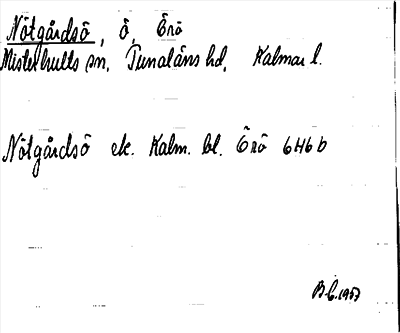 Nötgårdsö, Ö, Örö
Misterhults sn, Tunaläns hd, Kalmar l.
Nötgårdsö ek. Kalm. bl. Örö 6H6b
1957